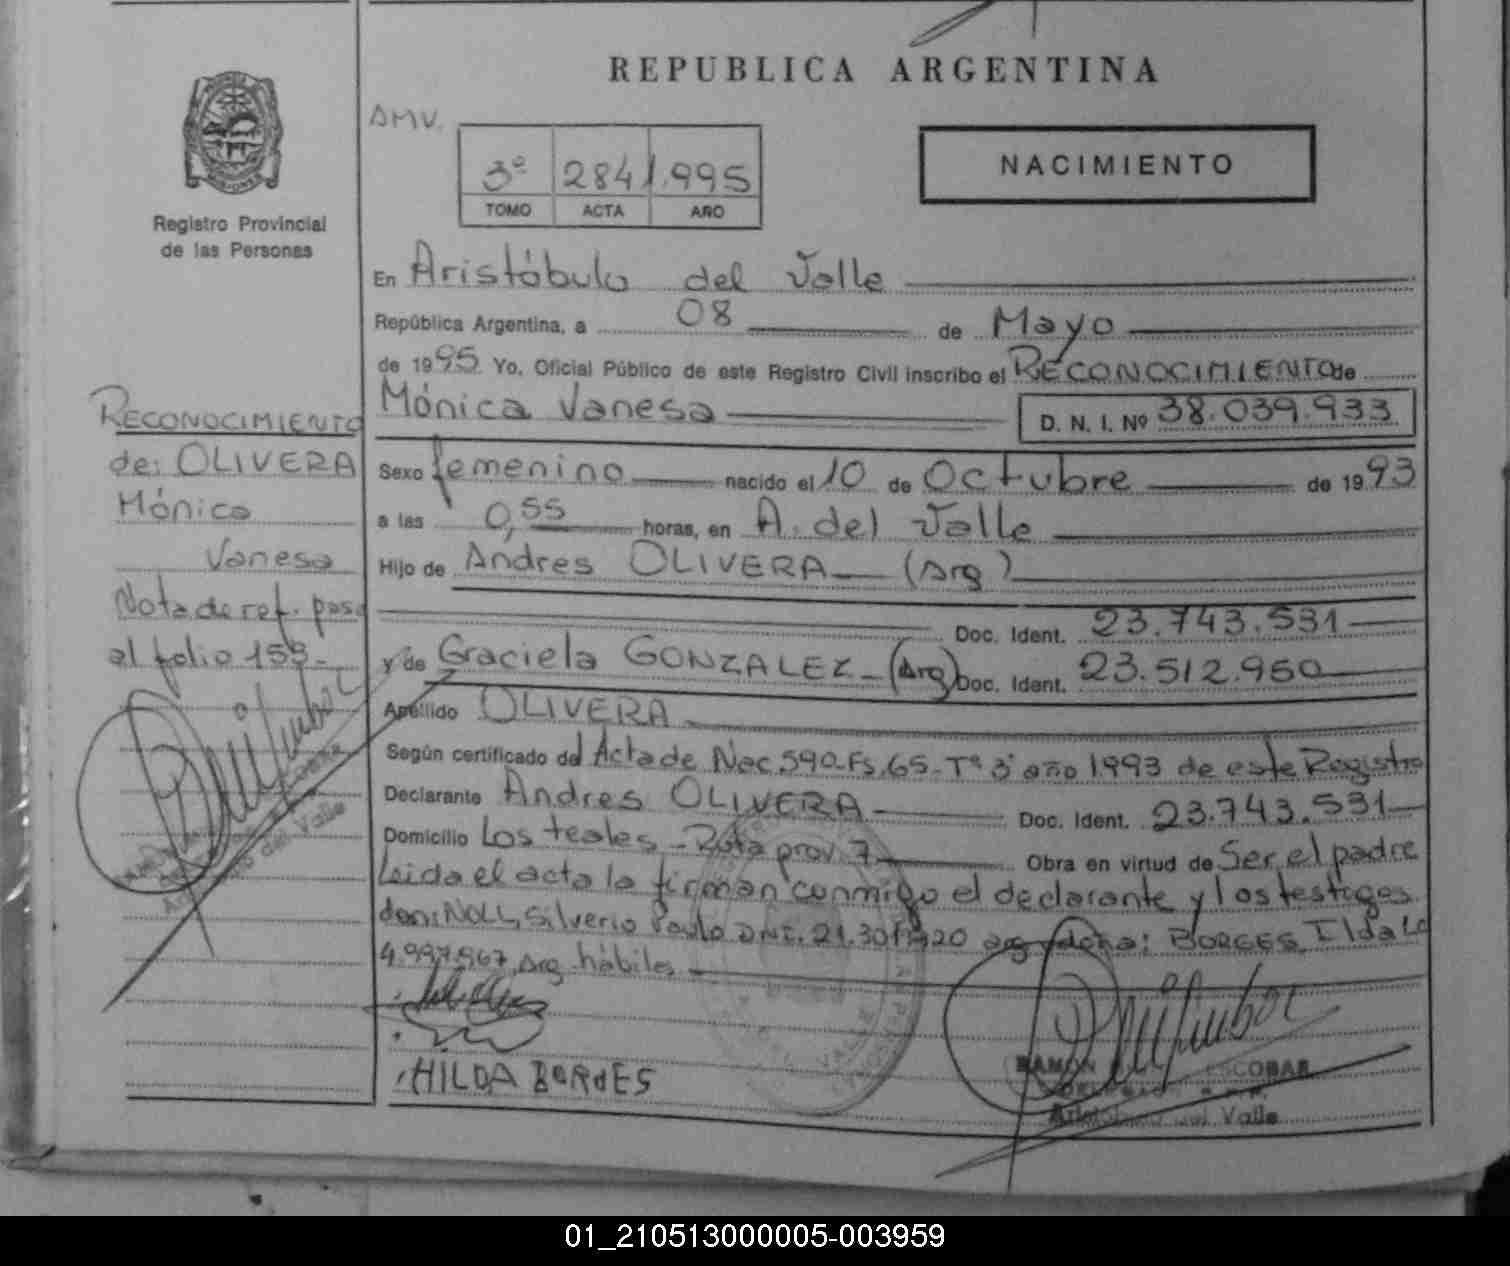 REPUBLICA ARGENTINA
AMV.
3º 284 1.995
TOMO ACTA AÑO
NACIMIENTO
Registro Provincial
de las Personas
En Aristóbulo del Valle
República Argentina, a 08 de Mayo
de 1995. Yo, Oficial Público de este Registro Civil inscribo el RECONOCIMIENTO de
Mónica Vanesa D. N. I. Nº 38.039.933
Sexo femenino nacido el 10 de Octubre de 1993
a las 0,55 horas, en A. del Valle
Hijo de Andres OLIVERA (Arg)
Doc. Ident. 23.743.531
y de Graciela GONZALEZ - (Arg) Doc. Ident. 23.512.960
Apellido OLIVERA
Según certificado del Acta de Nac. 590-Fs. 65-Tº 3º año 1993 de este Registro
Declarante Andres OLIVERA Doc. Ident. 23.743.531
Domicilio Los teales - Ruta prov. 7 Obra en virtud de Ser el padre
Leida el acta la firman conmigo el declarante y los testigos
don: NOLL, Silverio Paulo DNI. 21.30 20 arg y doña: BORGES, Ilda LC
4.997.967 Arg. hábiles
HILDA BORGES
RAMON ESCOBAR
Aristóbulo del Valle
RECONOCIMIENTO
de: OLIVERA
Mónica
Vanesa
Nota de ref. pasa
al folio 159-
ESCOBAR
del Valle
01_210513000005-003959